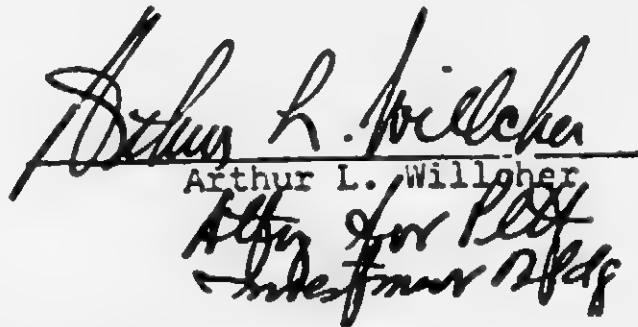 Arthur L. Willcher
Arthur L. Willcher
Atty for Pltf
Investment Bldg